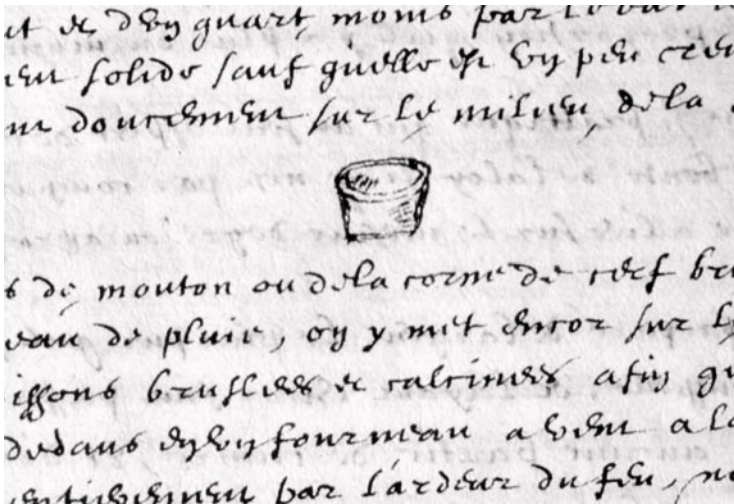 et de dvn quart moins par le
ent solide sauf quelle est vn peu creu
doucement sur le milieu, de la
s de mouton ou de la corne de cerf bru
eau de pluie, on y met encor sur l
issons bruslées et calcinées afin qu
dedans en vn fourneau a vent a la
entierement par l'ardeur du feu,